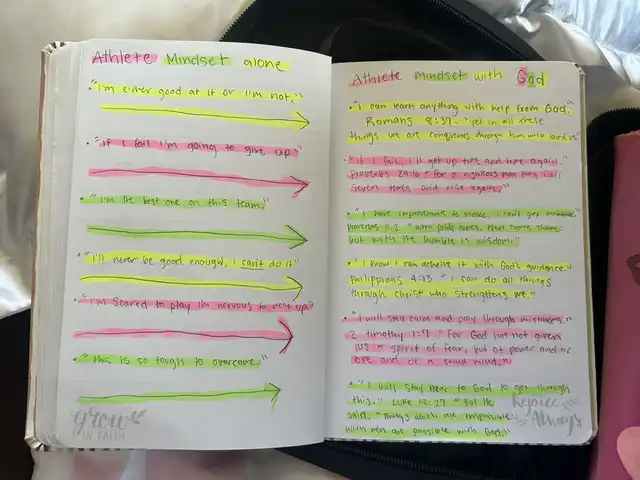 Athlete Mindset alone
• "I'm either good at it or I'm not."
• "If I fail I'm going to give up"
• "I'm the best one on this team."
• "I'll never be good enough, I can't do it"
• "I'm scared to play I'm nervous to mess up"
• "This is so tough to overcome."
grow
IN FAITH
Athlete Mindset with God
• "I can learn anything with help from God."
Romans 8:37 - "yet in all these
things we are conquerors through him who loved us"
• "If I fail, I'll get up time and time again."
Proverbs 24:16 " For a righteous man may fall
seven times and rise again."
• "I have improvements to make, I can't get
Proverbs 11:2 " when pride comes, then comes shame:
but with the humble is wisdom."
• "I know I can achieve it with God's guidance"
Philippians 4:13 " I can do all things
through christ who strengthens me."
• "I will stay calm and play through mistakes."
2 Timothy 1:7 " For God has not given
us a spirit of fear, but of power and of
love and of a sound mind."
• "I will stay near to God to get through
this." Luke 18:27 - "But He
said, "Things which are impossible
with men are possible with God."
Rejoice
Always